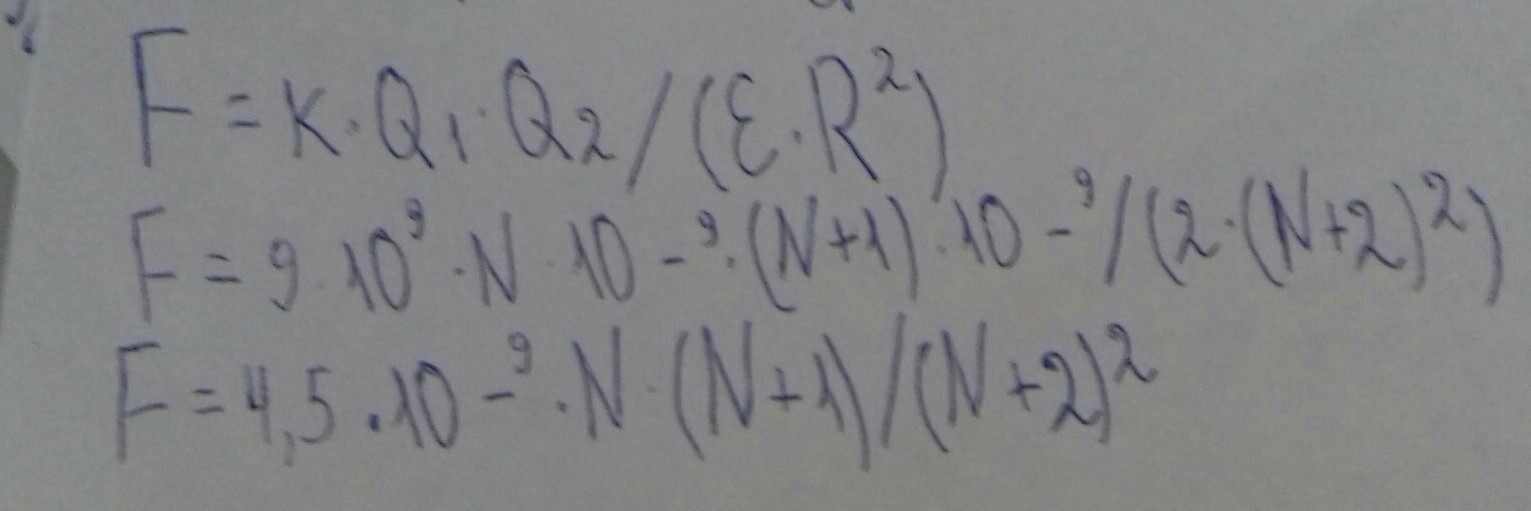 F = K · Q₁ · Q₂ / (ε · R²)
F = 9 · 10⁹ · N · 10 -⁹ · (N+1) · 10 -⁹ / (2 · (N+2)²)
F = 4,5 · 10 -⁹ · N · (N+1) / (N+2)²